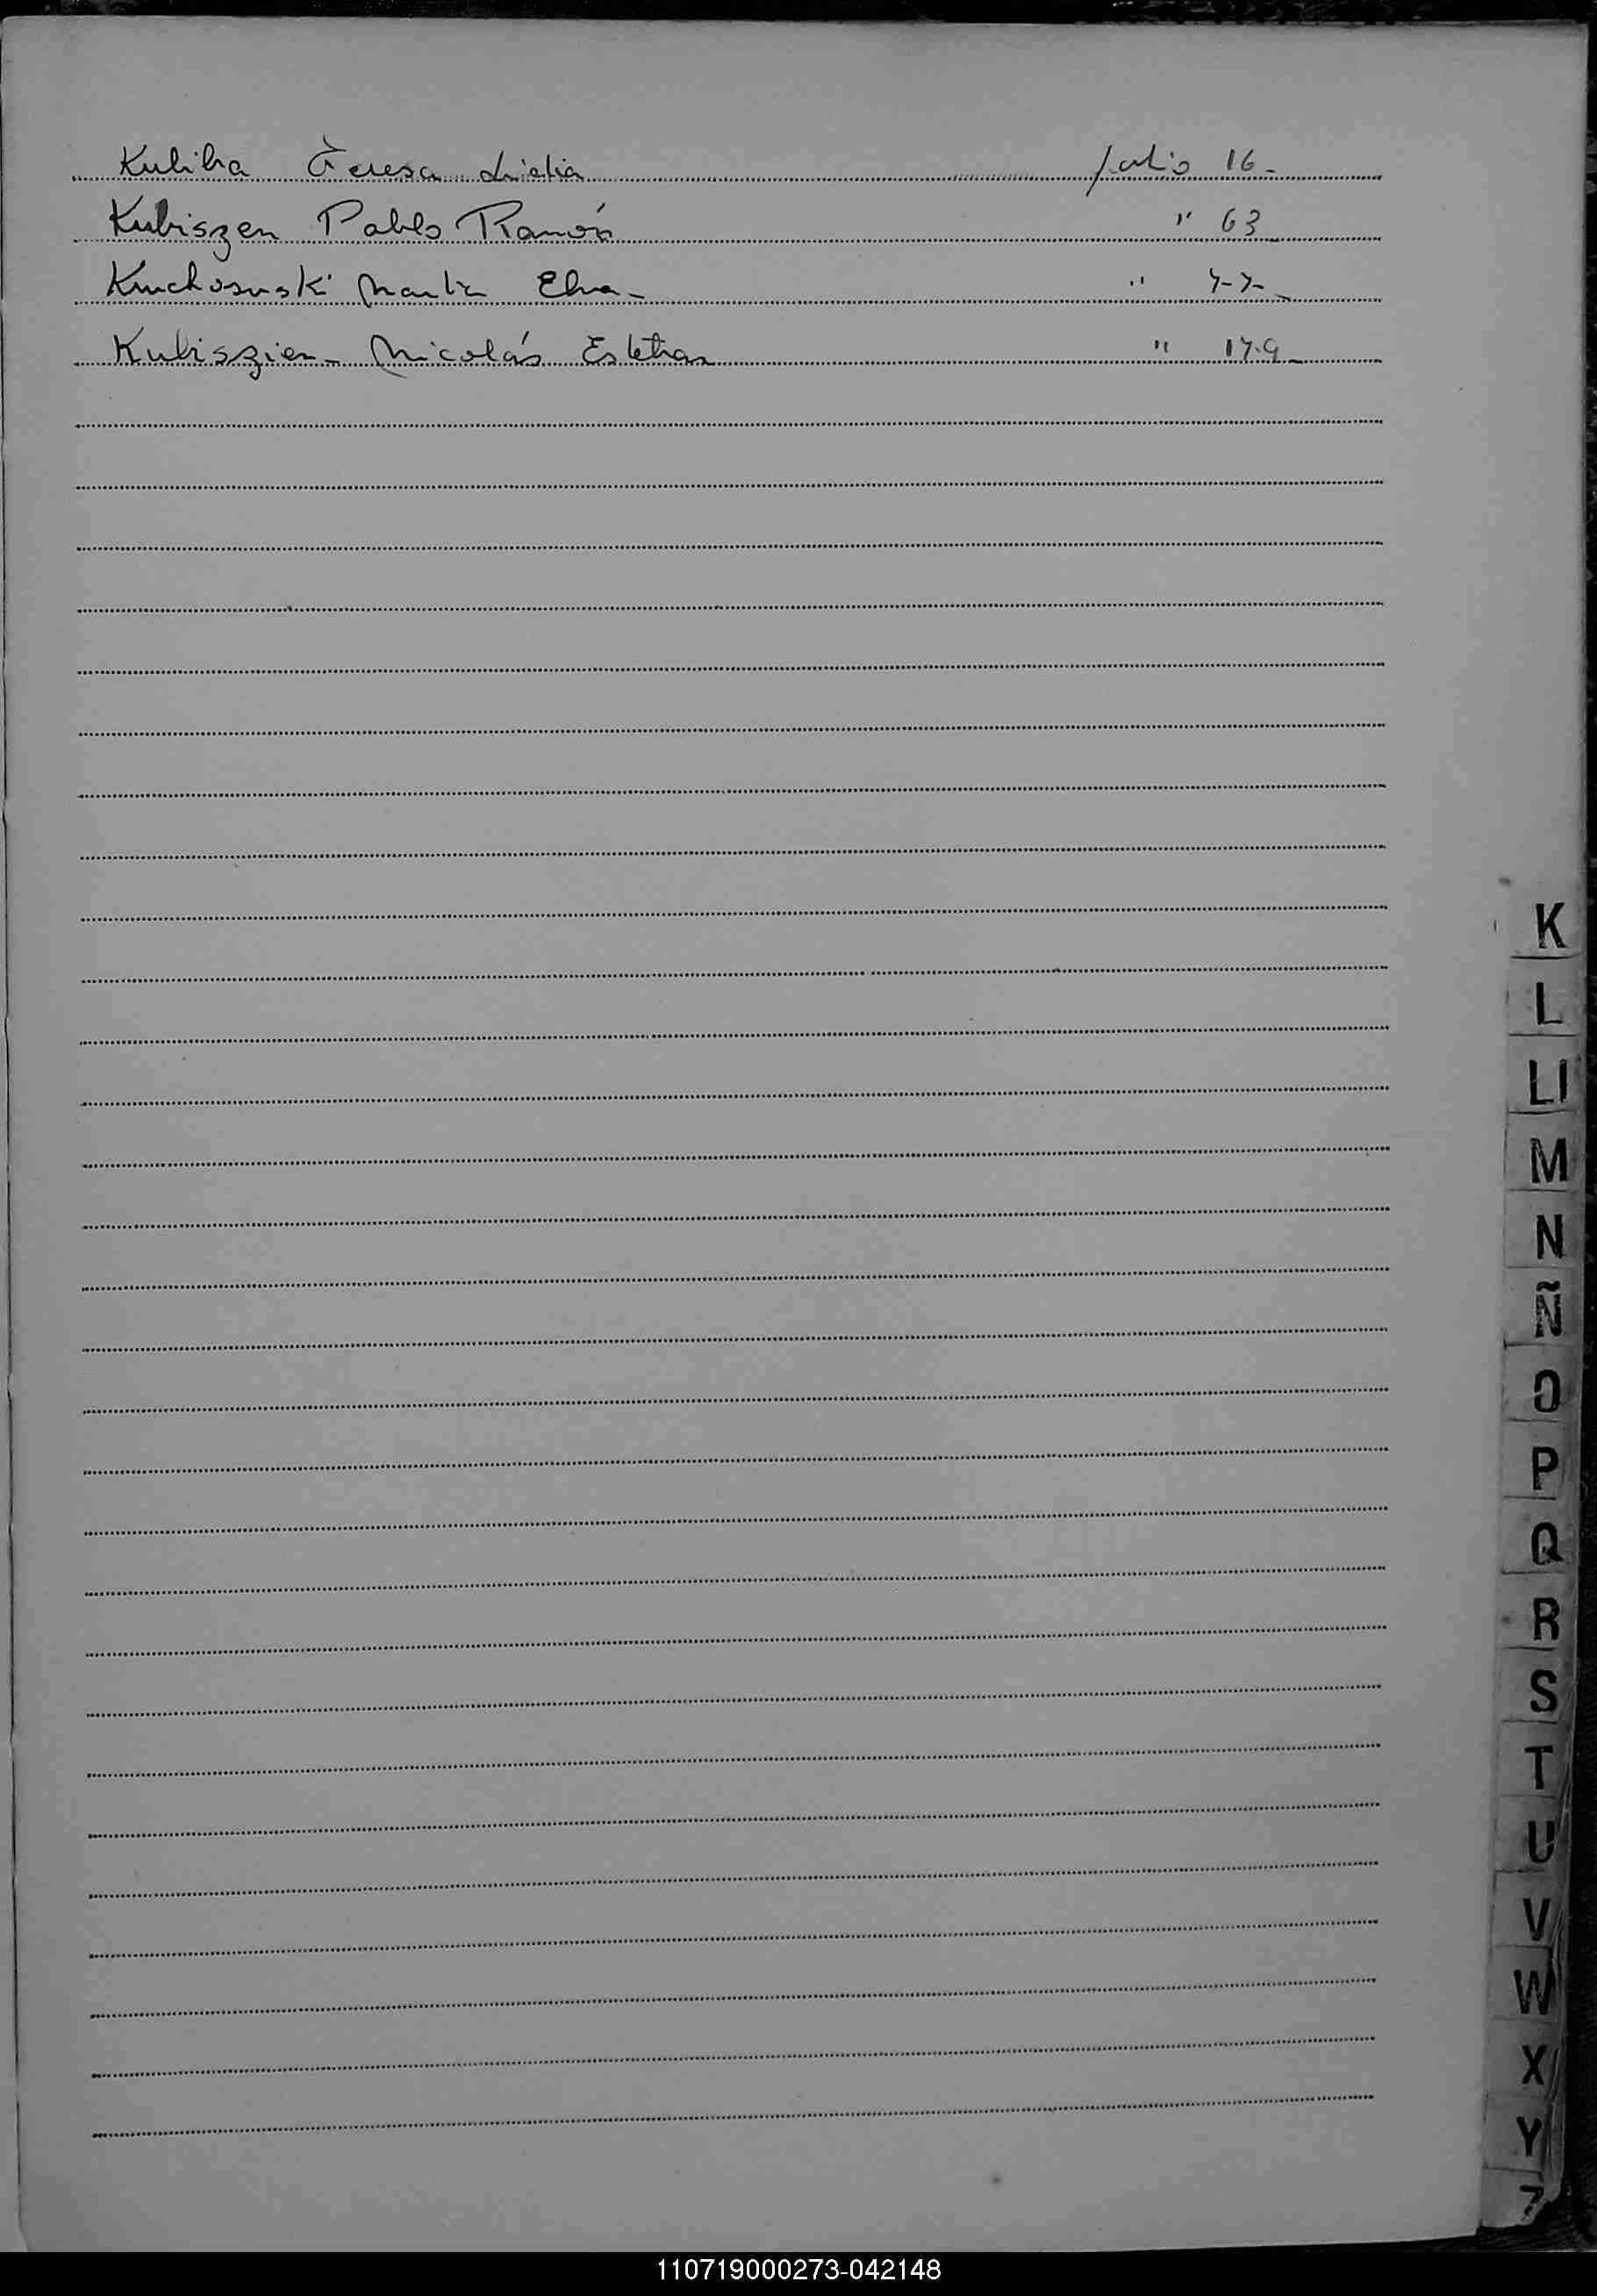 Kubiha Teresa Lidia folio 16-
Kubiszen Pablo Ramón " 63
Elva- " 77-
Kubiszien- Nicolás Esteban " 179-
K
L
Ll
M
N
Ñ
O
P
Q
R
S
T
U
V
W
X
Y
Z
110719000273-042148